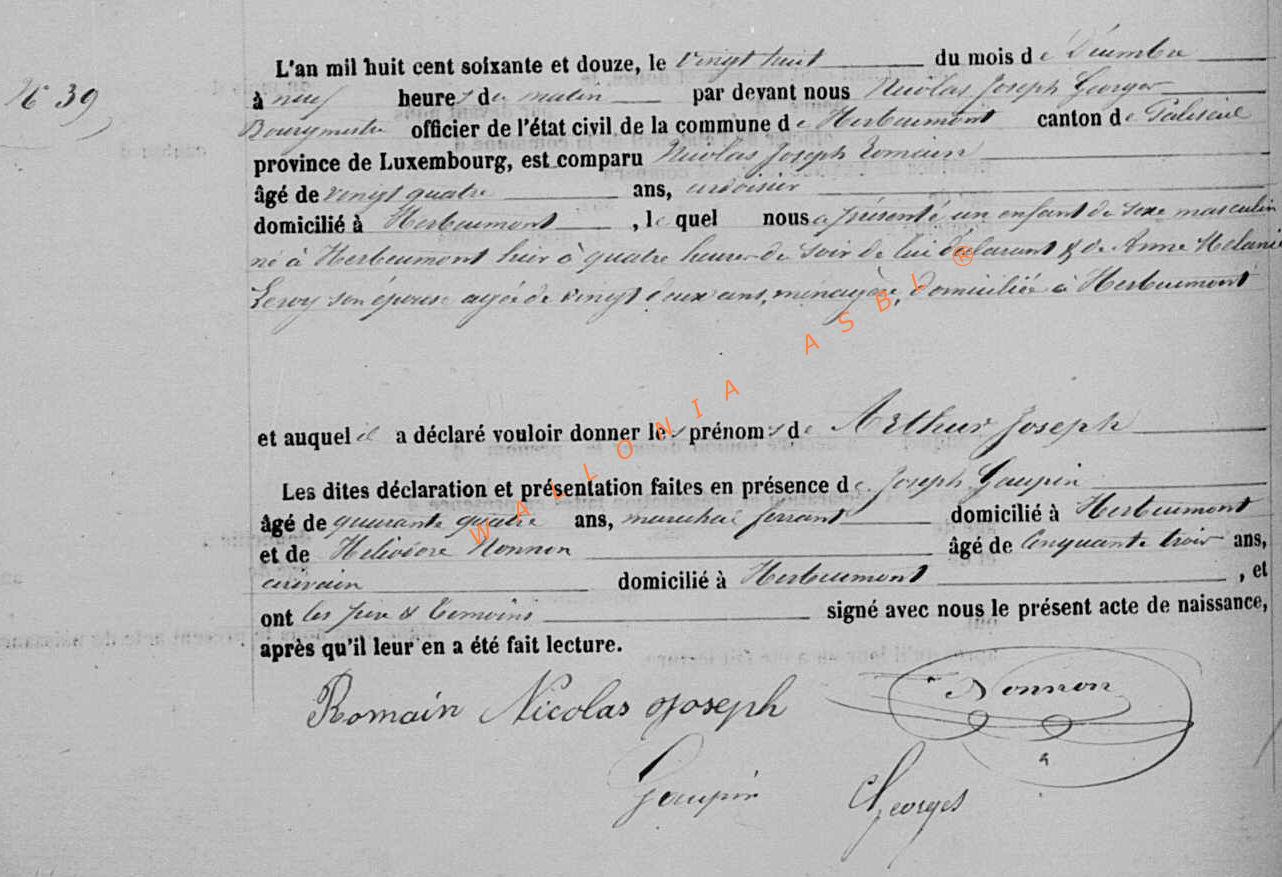 N° 39
L'an mil huit cent soixante et douze, le vingt huit du mois de Décembre
à neuf heures de matin par devant nous Nicolas Joseph Georges
Bourgmestre officier de l'état civil de la commune de Herbeumont canton de Paliseul
province de Luxembourg, est comparu Nicolas Joseph Romain
âgé de vingt quatre ans, ardoisier
domicilié à Herbeumont, le quel nous a présenté un enfant de sexe masculin
né à Herbeumont hier à quatre heures du soir de lui déclarant & de Anne Melanie
Leroy son épouse agée de vingt deux ans, menagère, domiciliée à Herbeumont
et auquel il a déclaré vouloir donner les prénoms de Arthur Joseph
Les dites déclaration et présentation faites en présence de Joseph Gaupin
âgé de quarante quatre ans, marechal ferrant domicilié à Herbeumont
et de Heliodore Nonnon âgé de cinquante trois ans,
ecrivain domicilié à Herbeumont, et
ont les père & temoins signé avec nous le présent acte de naissance,
après qu'il leur en a été fait lecture.
Romain Nicolas Joseph Nonnon
Gaupin Georges
WALLONIA ASBL ®